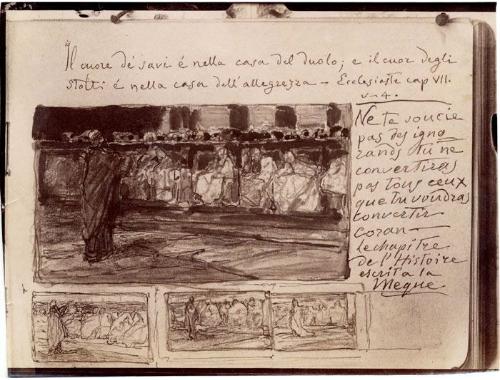 Il cuore de' savi é nella casa del duolo; e il cuor degli
stolti é nella casa dell'allegrezza – Ecclesiaste cap VII.
v–4.
Ne te soucie
pas des igno
rands tu ne
convertiras
pas tous ceux
que tu voudras
convertir
coran
le chapitre
de l'Histoire
escrit a la
Meque